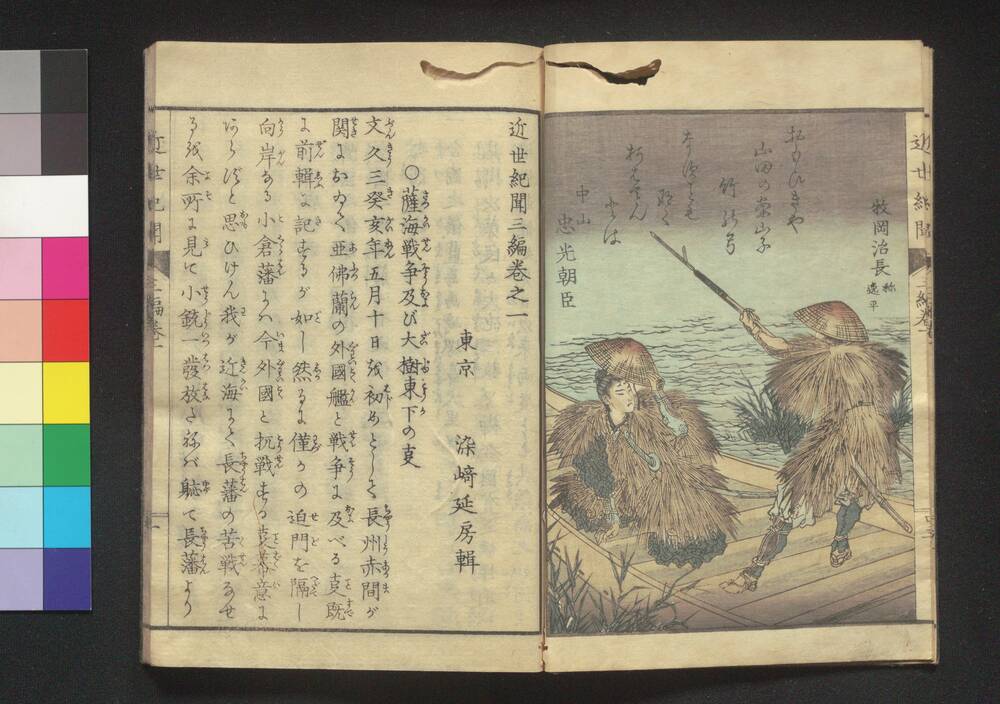 近世紀聞
三編巻一
牧岡治長
称逸平
おもひきや
山田の案山子
竹の弓
中山
忠光朝臣
近世紀聞三編巻之一
東京 染﨑延房輯
○薩海戦争及び大樹東下の叓
文久三癸亥年五月十日を初めとして長州赤間が
関において亜佛蘭の外國艦と戦争に及べる叓既
に前輯に記するが如し然るに僅かの迫門を隔し
向岸なる小倉藩にハ今外國と抗戦する叓
あらずと思ひけん我が近海にて長藩の苦戦なせ
るを余所に見て小銃一發放たねバ軈て長藩より
近世紀聞
三編巻一
一